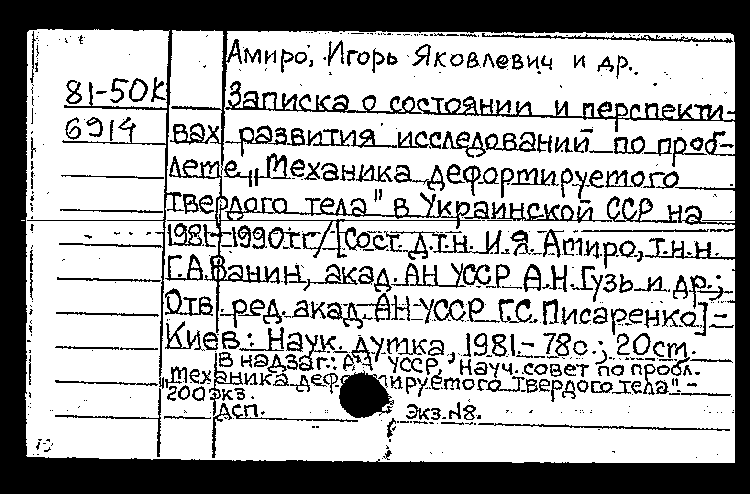 Амиро, Игорь Яковлевич и др.
81-50К Записка о состоянии и перспекти-
6914 вах развития исследований по проб-
леме „Механика деформируемого
твердого тела" в Украинской ССР на
1981-1990гг/[Сост. д.т.н. И.Я. Амиро, т.н.н.
Г.А.Ванин, акад. АН УССР А.Н.Гузь и др.;
Отв. ред. акад. АН УССР Г.С.Писаренко]-
Киев: Наук. думка, 1981.-78с.; 20см.
В надзаг.: АН УССР, Науч. совет по пробл.
„Механика деформируемого твердого тела".-
200экз.
ДСП. Экз.№8.